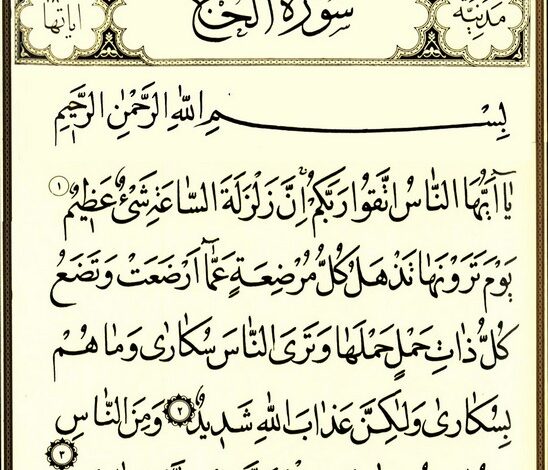 مَدَنِيَّة سُورَةُ الْحَجّ اٰيَاتُهَا
بِسْمِ اللّٰهِ الرَّحْمٰنِ الرَّحِيمِ
يَآ اَيُّهَا النَّاسُ اتَّقُوا رَبَّكُمْ اِنَّ زَلْزَلَةَ السَّاعَةِ شَيْءٌ عَظِيمٌ ١
يَوْمَ تَرَوْنَهَا تَذْهَلُ كُلُّ مُرْضِعَةٍ عَمَّآ اَرْضَعَتْ وَتَضَعُ
كُلُّ ذَاتِ حَمْلٍ حَمْلَهَا وَتَرَى النَّاسَ سُكَارٰى وَمَا هُمْ
بِسُكَارٰى وَلٰكِنَّ عَذَابَ اللّٰهِ شَدِيدٌ ٢ وَمِنَ النَّاسِ
٣